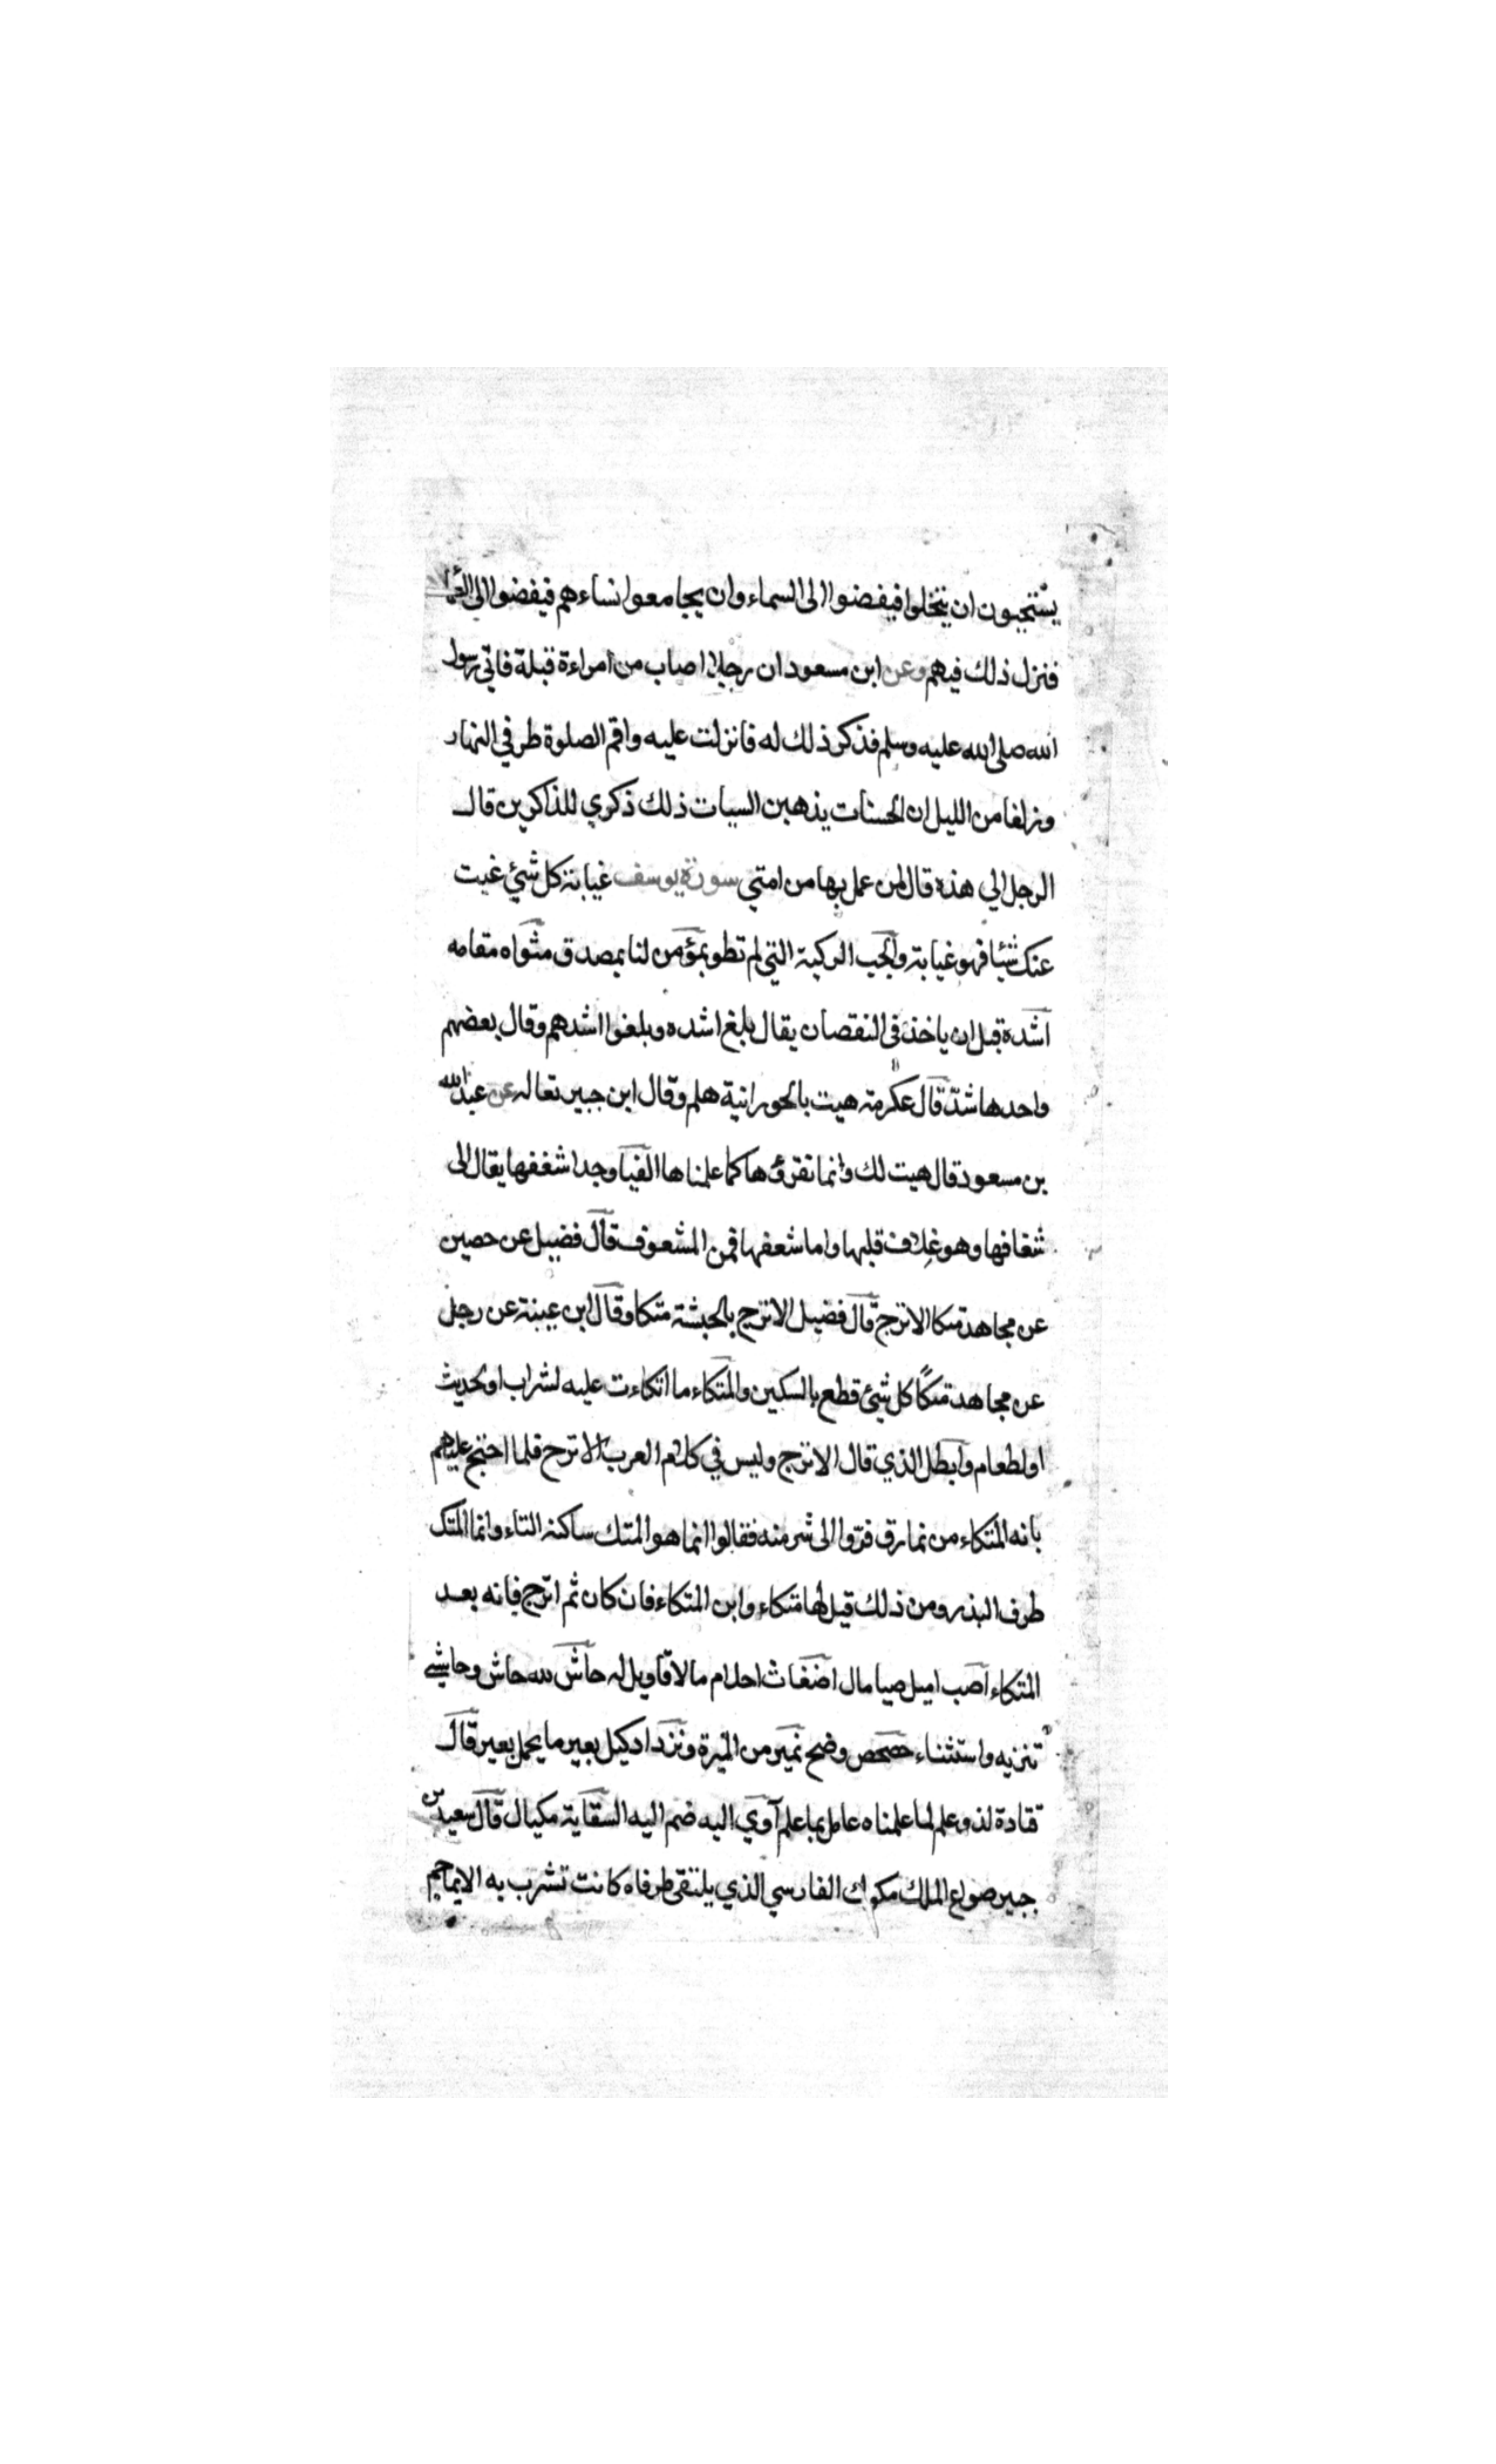 يستحيون ان يتخلوا فيفضوا الى السماء وان يجامعوا نساءهم فيفضوا الى السما
فنزل ذلك فيهم وعن ابن مسعود ان رجلا اصاب من امراءة قبلة فاتى رسول
الله صلى الله عليه وسلم فذكر ذلك له فانزلت عليه واقم الصلوة طرفي النهار
وزلفا من الليل ان الحسنات يذهبن السيات ذلك ذكري للذاكرين قال
الرجل الي هذه قال لمن عمل بها من امتي سورة يوسف غيابة كل شئ غيبت
عنك شيئا فهو غيابة والجب الركية التي لم تطو بمؤمن لنا بمصدق مثواه مقامه
اشده قبل ان ياخذ في النقصان يقال بلغ اشده وبلغوا اشدهم وقال بعضهم
واحدها شد قال عكرمة هيت بالحورانية هلم وقال ابن جبير تعاله عن عبد الله
بن مسعود قال هيت لك وانما نقرؤها كما علمناها الفيا وجدا شغفها يقال الى
شغافها وهو غلاف قلبها واما شعفها فمن المشعوف قال فضيل عن حصين
عن مجاهد متكا الاترج قال فضيل الاترج بالحبشة متكا وقال ابن عيينة عن رجل
عن مجاهد متكا كل شئ قطع بالسكين والمتكاء ما اتكاءت عليه لشراب او لحديث
او لطعام وابطل الذي قال الاترج وليس في كلام العرب الاترج فلما احتج عليهم
بانه المتكاء من نمارق فرّوا الى شر منه فقالوا انما هو المتك ساكنة التاء وانما المتك
طرف البذر ومن ذلك قيل لها متكاء وابن المتكاء فان كان ثم اترج فانه بعد
المتكاء اصب اميل صبا مال اضغاث احلام مالا تاويل له حاش لله حاش وحاشي
تنزيه واستثناء حصحص وضح نمير من الميرة ونزداد كيل بعير ما يحمل بعير قال
قتادة لذو علم لما علمناه عامل بما علم آوي اليه ضم اليه السقاية مكيال قال سعيد بن
جبير صواع الملك مكوك الفارسي الذي يلتقى طرفاه كانت تشرب به الاعاجم